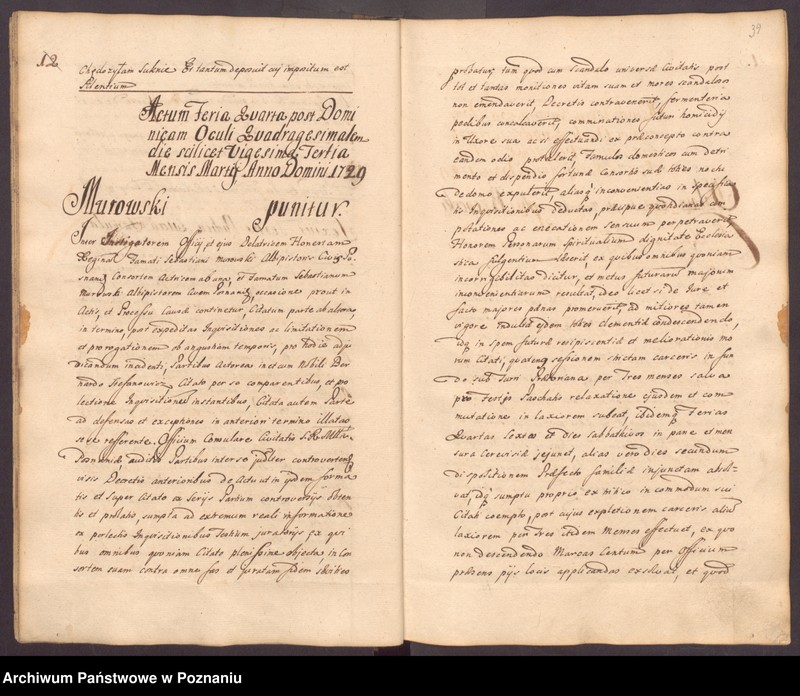 12
Chędozytam Suknie Et tantum deposuit cuj impositum est
Silentium
Actum Feria Quarta post Domi
nicam Oculi Quadragesimalem
die scilicet Vigesima Tertia
Mensis Martij Anno Domini 1729
Murowski punitur.
Inter Instigatorem Officij et ejus Delatricem Honestam
Reginam Famati Sebastiani Murowski Albipistoris Civis Po
snan Consortem Actricem ab una, et Famatum Sebastianum
Murowski Albipistorem Civem Posnan occasione prout in
Actis, et Processu Causae continetur, Citatum parte ab altera,
in termino, post expeditas Inquisitiones ac limitationem
et prorogationem ob angustiam temporis, pro hodie adju
dicandum incidenti, Partibus Actorea in etum Nobili Ber
nardo Stefanowicz Citato per se comparentibus, et pro
lectione Inquisitionis instantibus, Citata autem Parte
ad defensas et exceptiones in anteriori termino illatas
se se referente. Officium Consulare Civitatis S.R.M.
Posnaniae auditis Partibus inter se juditer controvertentibus
visis Decretis anterioribus de Actu at in ijsdem forma
tis et super Citato ex Serijs Partium controversijs obten
tis et prolatis, sumpta ad extremum reali informatione
ex perlectis Inquisitionibus Testium juratorijs ex qui
bus omnibus quoniam Citato plenissime objecta, in Con
sortem suam contra omne fas et juratam fidem sevities
39
probatur, tum quod cum scandalo universae Civitatis post
tot et tantas monitiones vitam suam et mores scandalosos
non emendaverit, Decretis contravenerit, fermenteria
pedibus conculcaverit, comminationes futuri homicidij
in Uxore sua ac si effectuandi ex praeconcepto contra
eandem odio protulerit, Famulos domesticos cum detri
mento et dispendio fortunae Consortis suae nochi
de domo expulerit, aliasq inconvenientias in specificis
his Inquisitionibus deductas, praecipue quotidianas com
potationes ac execationem sensuum perpetraverit,
Honorem Personarum Spiritualium dignitate Ecclesia
stica fulgentium, ex quibus omnibus quoniam
incorrigibilitas dicitur, et metus futurarum majorum
inconvenientiarum resultat, ideo licet si de Jure et
facto majores paenas promeruerit, ad mitiores tamen
vigore indulta ejdem clementia condescendendo,
idq in spem futurae resipiscentiae et meliorationis mo
rum Citati, quatenus sessionem strictam carceris in fun
do sub Turri Praetoriana per Tres menses salva
pro festis Paschatis relaxatione ejusdem et com
mutatione in laxiorem subeat, ibidemq Ferias
Quartas Sextas et dies Sabbathivos in pane et men
sura Cerevisiae jejunet, alias vero dies secundum
dispositionem Praefecto familiae injunctam absol
vat, idq sumptu proprio ex tritico in commodum sui
Citati coempto, post cujus expletionem carceris alium
laxiorem per Tres itidem Menses effectuet, ex quo
non descendendo Marcas Centum per Officium
praesens pijs locis applicandas exsolvat, et quod
Archiwum Państwowe w Poznaniu